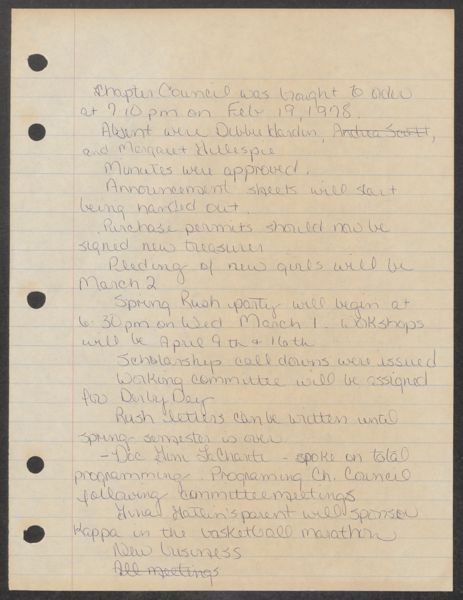 Chapter Council was brought to order
at 7:10 pm on Feb 19, 1978.
Absent were Debbie Hardin, Andrea Scott,
and Margaret Gillespie
Minutes were approved.
Announcement sheets will start
being handed out.
Purchase permits should now be
signed new treasurer
Pledging of new girls will be
March 2
Spring Rush party will begin at
6:30 pm on Wed March 1. Workshops
will be April 9th & 16th
Scholarship call downs were issued
Working committee will be assigned
for Derby Day
Rush letters can be written until
spring semester is over
- Dee - spoke on total
programming. Programing Ch. Council
following committee meetings
parent will sponsor
Kappa in the basketball marathon
New business
All meetings